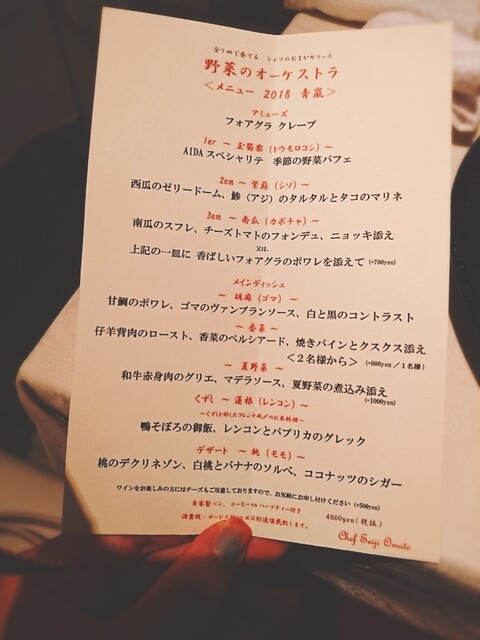 全7皿で奏でる シェフのおまかせコース
野菜のオーケストラ
＜メニュー 2018 青嵐＞
アミューズ
フォアグラ クレープ
1er ～ 玉蜀黍（トウモロコシ）～
AIDAスペシャリテ 季節の野菜パフェ
2em ～ 紫蘇（シソ）～
西瓜のゼリードーム、鯵（アジ）のタルタルとタコのマリネ
3em ～ 南瓜（カボチャ）～
南瓜のスフレ、チーズトマトのフォンデュ、ニョッキ添え
又は、
上記の一皿に 香ばしいフォアグラのポワレを添えて（+700yen）
メインディッシュ
～ 胡麻（ゴマ）～
甘鯛のポワレ、ゴマのヴァンブランソース、白と黒のコントラスト
～ 香菜 ～
仔羊背肉のロースト、香菜のペルシアード、焼きパインとクスクス添え
＜２名様から＞（+800yen／１名様）
～ 夏野菜 ～
和牛赤身肉のグリエ、マデラソース、夏野菜の煮込み添え
（+1000yen）
くずし ～ 蓮根（レンコン）～
鴨そぼろの御飯、レンコンとパプリカのグレック
デザート ～ 桃（モモ）～
桃のデクリネゾン、白桃とバナナのソルベ、ココナッツのシガー
ワインをお楽しみの方にはチーズもご用意しておりますので、お気軽にお申し付けください（+500yen）
自家製パン、コーヒーor ハーブティー付き
4800yen（税抜）
消費税・サービス料10%は別途頂戴致します。
Chef Seiji Omote